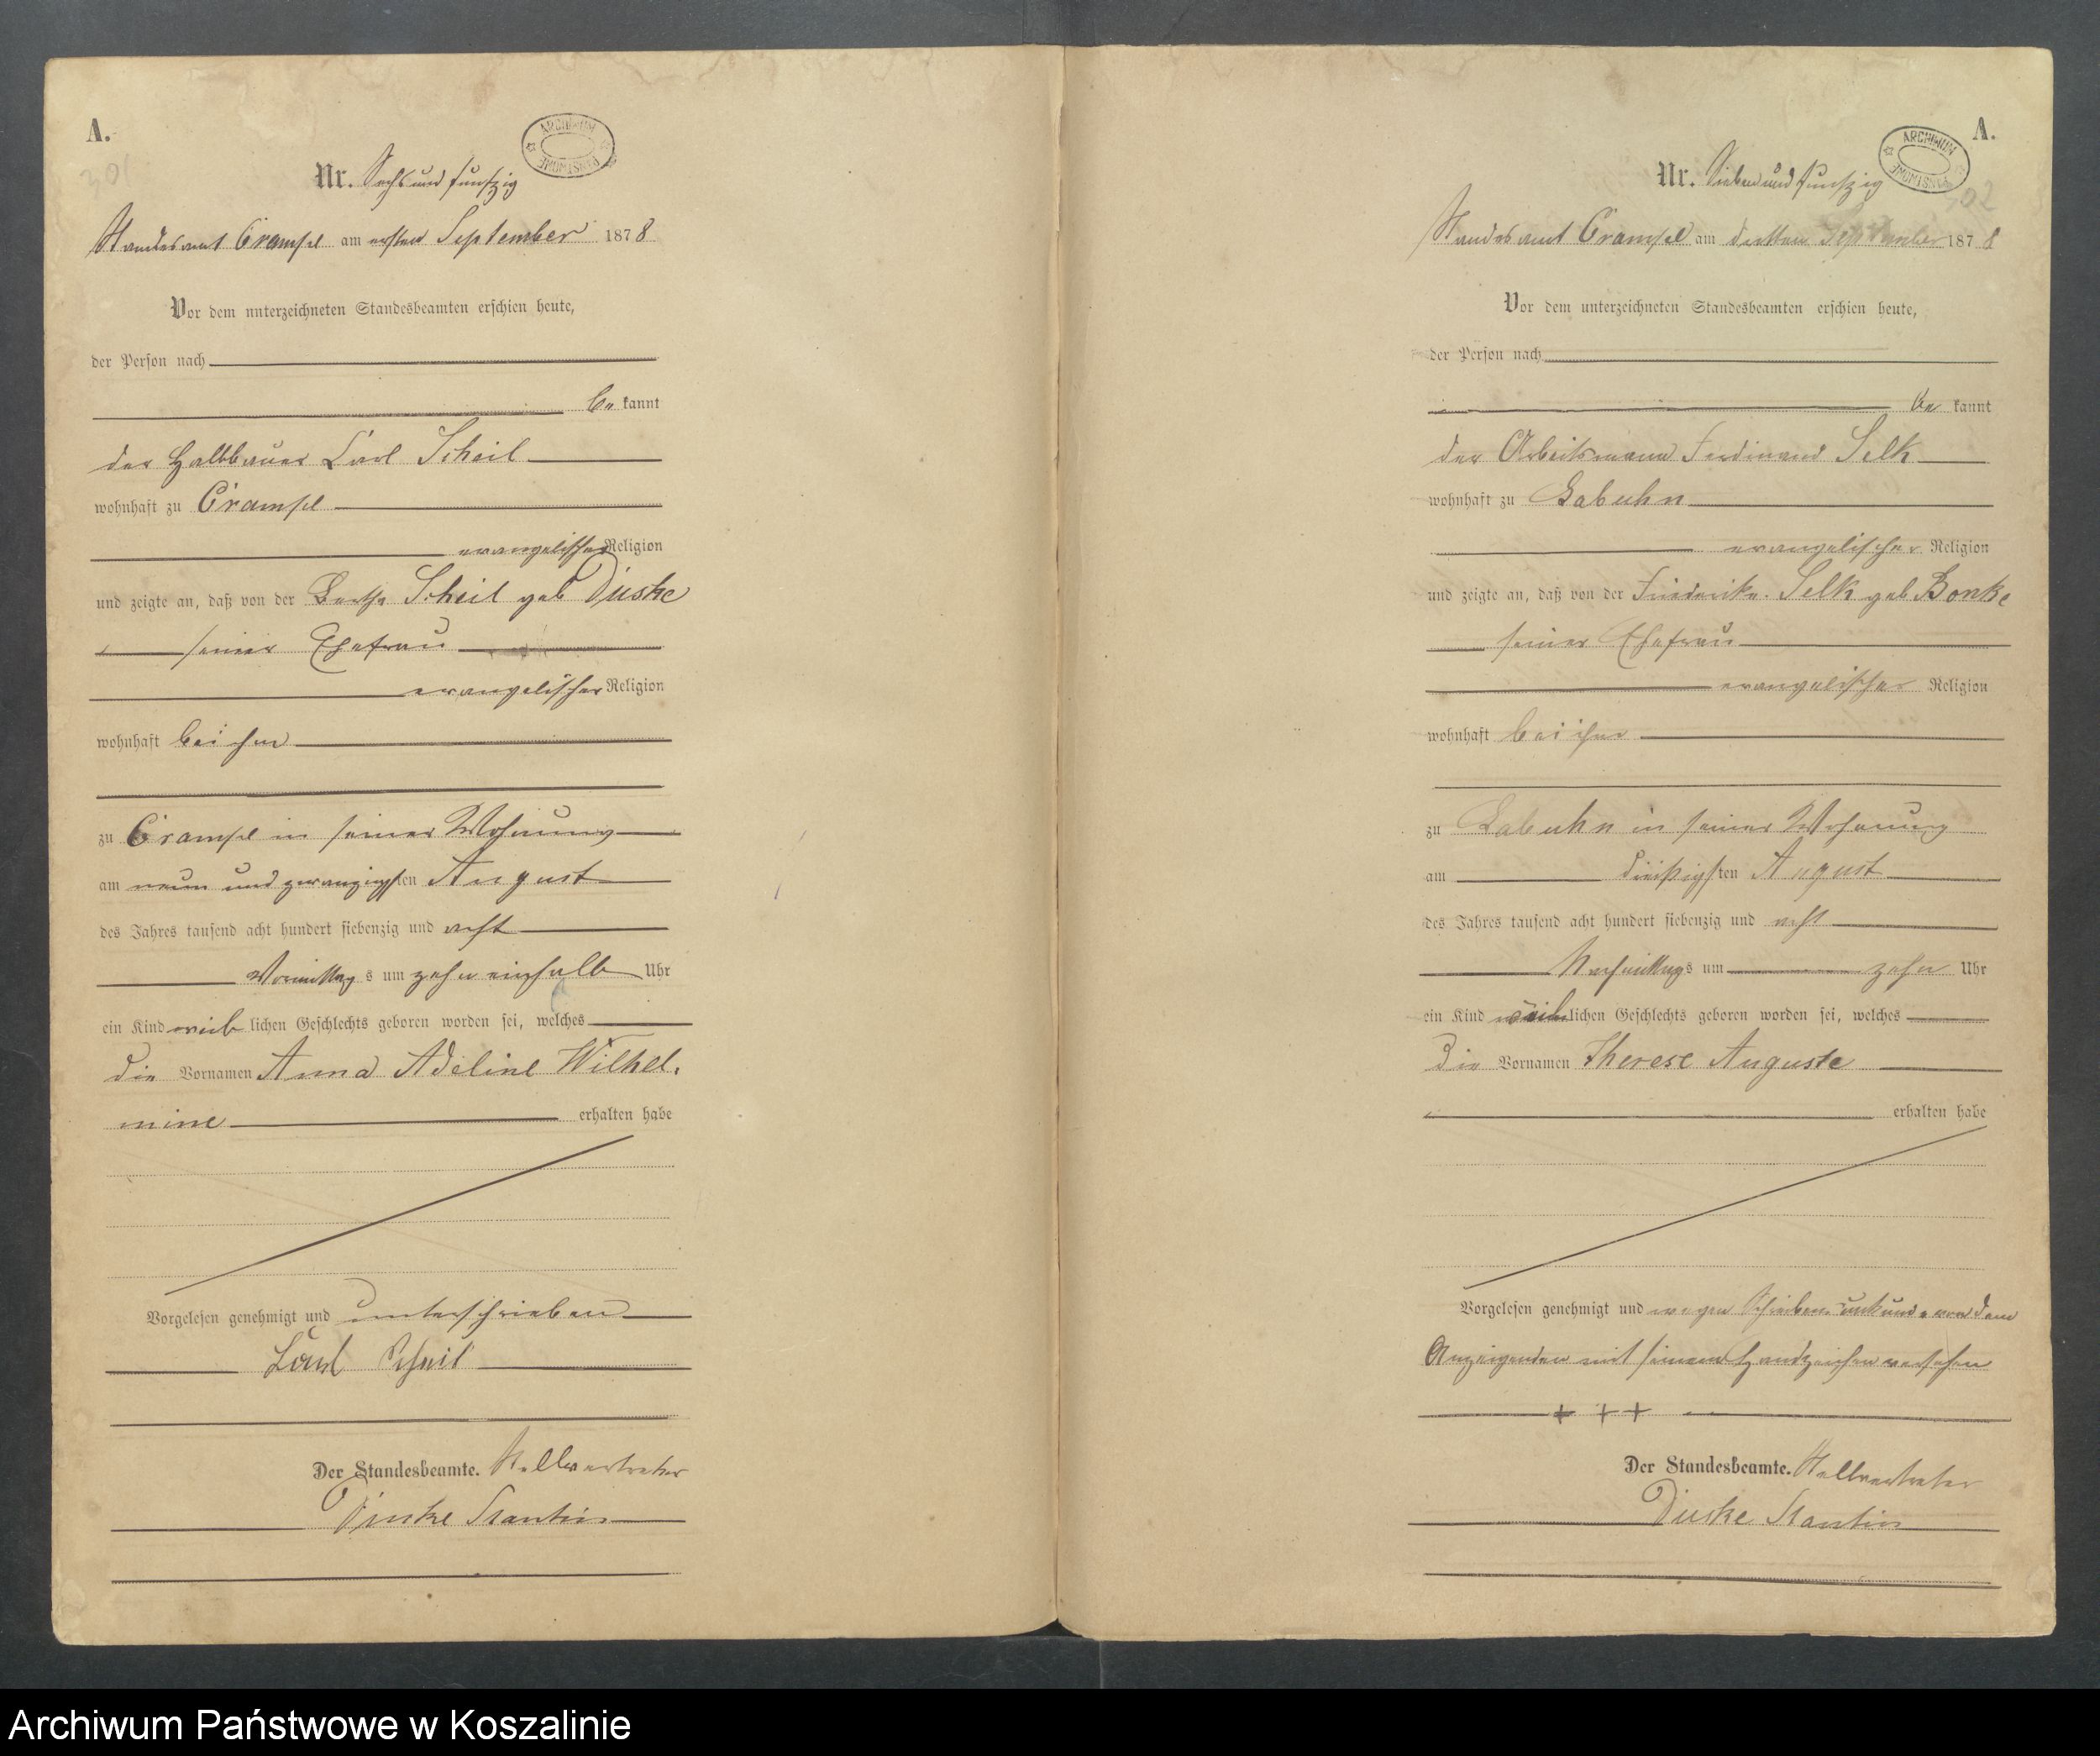 A.
301
ARCHIWUM PAŃSTWOWE
Nr. Sechs und funfzig
Standesamt Crampe am ersten September 1878
Vor dem unterzeichneten Standesbeamten erschien heute,
der Person nach
be kannt
der Halbbauer Carl Scheil
wohnhaft zu Crampe
evangelischer Religion
und zeigte an, daß von der Bertha Scheil geb Duske
seiner Ehefrau
evangelischer Religion
wohnhaft bei ihm
zu Crampe in seiner Wohnung
am neun und zwanzigsten August
des Jahres tausend acht hundert siebenzig und acht
Vormittags um zehn einhalb Uhr
ein Kind weiblichen Geschlechts geboren worden sei, welches
die Vornamen Anna Adeline Wilhel-
mine erhalten habe
Vorgelesen genehmigt und unterschrieben
Carl Scheil
Der Standesbeamte. Stellvertreter
Duske
A.
302
ARCHIWUM PAŃSTWOWE
Nr. Sieben und funfzig
Standesamt Crampe am dritten September 1878
Vor dem unterzeichneten Standesbeamten erschien heute,
der Person nach
be kannt
der Arbeitsmann Ferdinand Selk
wohnhaft zu Labuhn
evangelischer Religion
und zeigte an, daß von der Friederike Selk geb Bonke
seiner Ehefrau
evangelischer Religion
wohnhaft bei ihm
zu Labuhn in seiner Wohnung
am dreißigsten August
des Jahres tausend acht hundert siebenzig und acht
Nachmittags um zehn Uhr
ein Kind weiblichen Geschlechts geboren worden sei, welches
die Vornamen Therese Auguste
erhalten habe
Vorgelesen genehmigt und wegen Schreibensunkunde von dem
Anzeigenden mit seinem Handzeichen versehen
+ + +
Der Standesbeamte. Stellvertreter
Duske
Archiwum Państwowe w Koszalinie